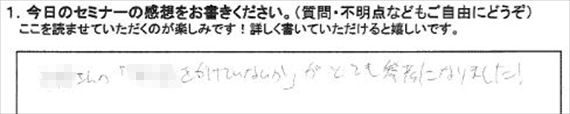 1. 今日のセミナーの感想をお書きください。(質問・不明点などもご自由にどうぞ)
ここを読ませていただくのが楽しみです!詳しく書いていただけると嬉しいです。
さんの「をかけていないか」がとても参考になりました!